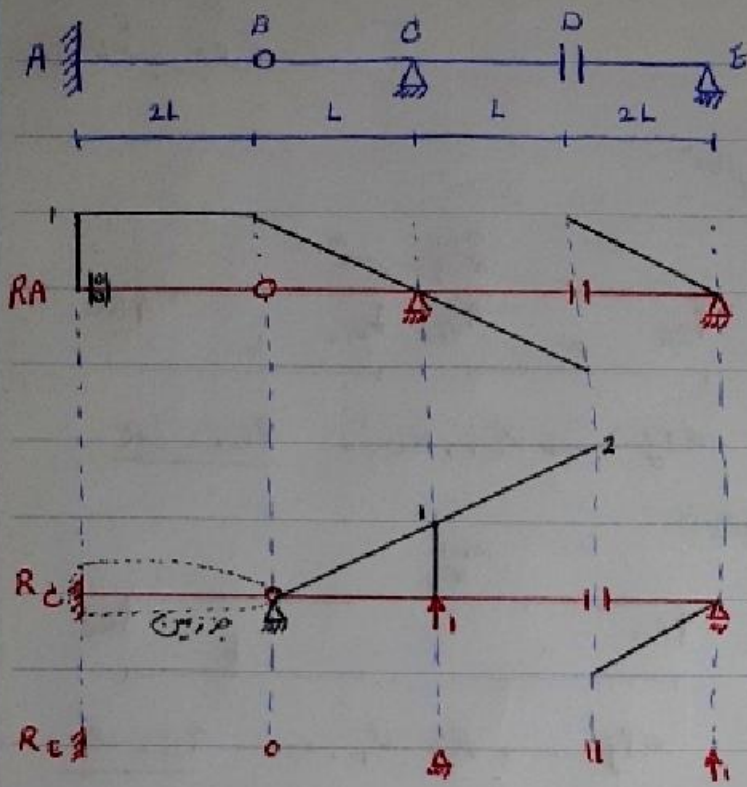 B C D
A E
2L L L 2L
1
RA
2
1
RC
1
RE
1